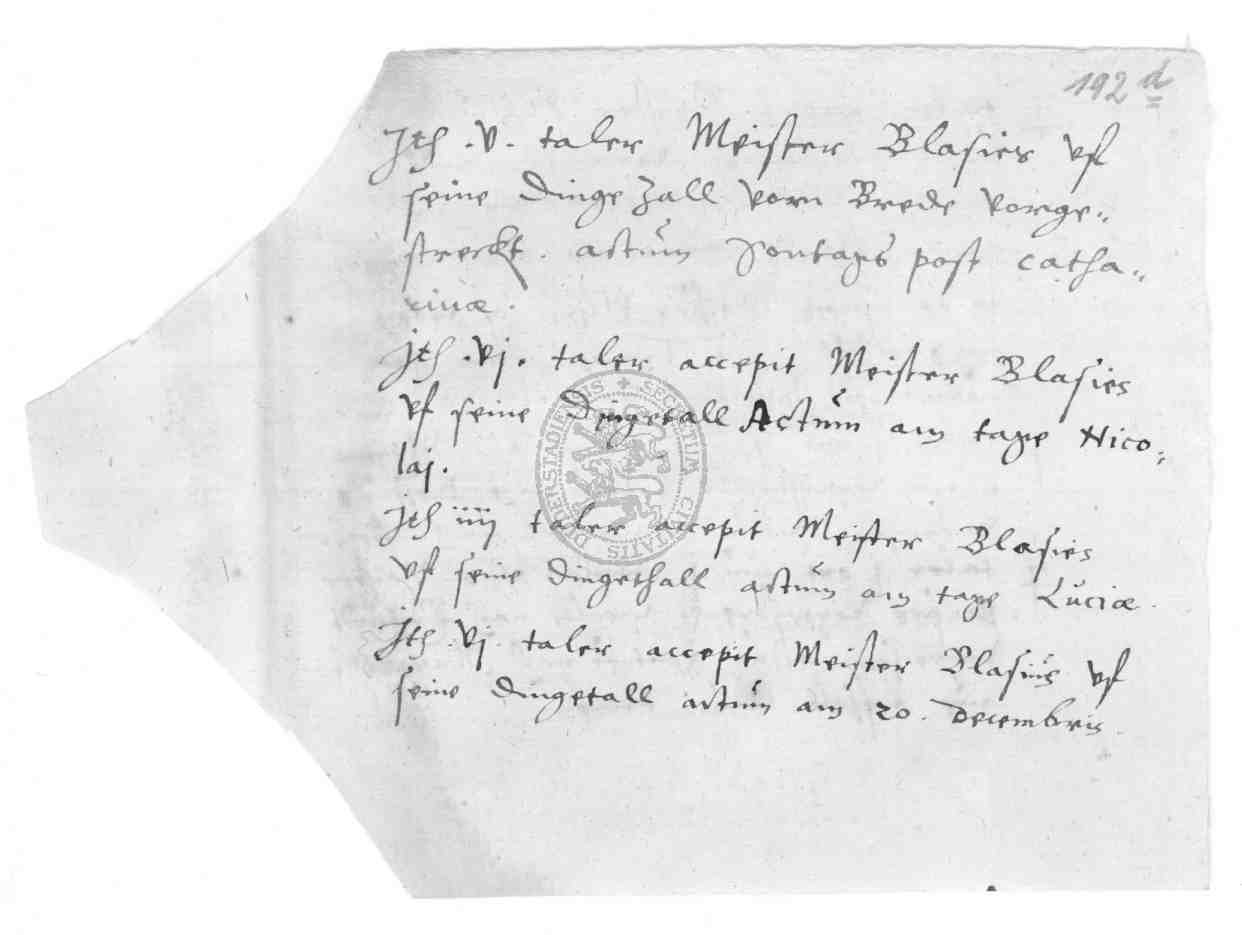 192 d
Jth .v. taler Meister Blasies vf
seine Dinge zall vorn Brede vorge-
streckt. actum Sontags post catha-
rinæ.
Jth .vj. taler accepit Meister Blasies
vf seine Dingetall Actum am tage Nico-
laj.
Jth iiij taler accepit Meister Blasies
vf seine dingethall actum am tage Luciæ.
Jth .vj. taler accepit Meister Blasius vf
seine dingetall actum am 20. Decembris.
SECRETUM CIVITATIS DUDERSTADIENSIS